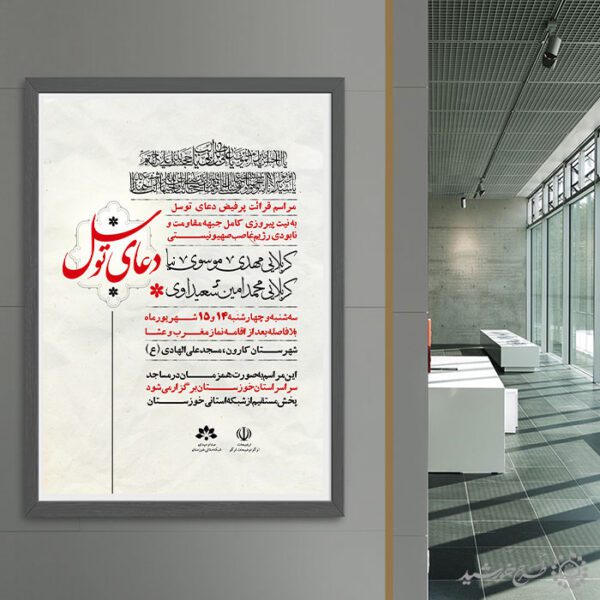 دعای توسل
مراسم قرائت پرفیض دعای توسل
به نیت پیروزی کامل جبهه مقاومت و
نابودی رژیم غاصب صهیونیستی
کربلایی مهدی موسوی نیا
کربلایی محمد امین سعیداوی
سه شنبه و چهارشنبه ۱۴ و ۱۵ شهریورماه
بلافاصله بعد از اقامه نماز مغرب و عشا
شهرستان کارون، مسجد علی الهادی (ع)
این مراسم به صورت همزمان در مساجد
سراسر استان خوزستان برگزار می شود
پخش مستقیم از شبکه استانی خوزستان